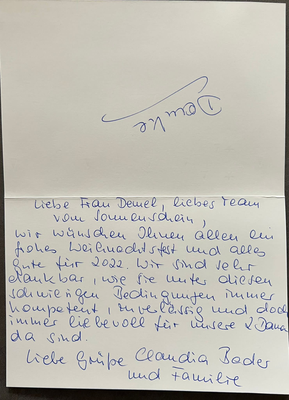 Danke
Liebe Frau Demel, liebes Team
vom Sonnenschein,
wir wünschen Ihnen allen ein
frohes Weihnachtsfest und alles
gute für 2022. Wir sind sehr
dankbar, wie sie unter diesen
schwierigen Bedingungen immer
kompetent, zuverlässig und doch
immer liebevoll für unsere 2 Damen
da sind.
Liebe Grüße Claudia Bader
und Familie